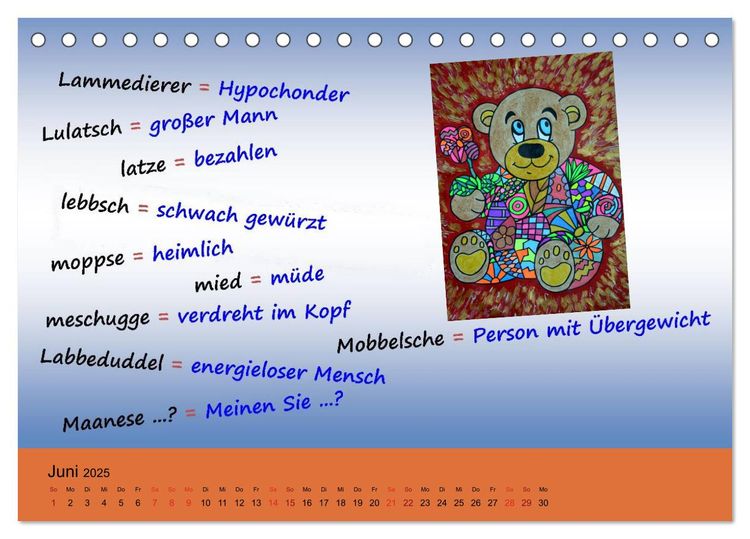 Lammedierer = Hypochonder
Lulatsch = großer Mann
latze = bezahlen
lebbsch = schwach gewürzt
moppse = heimlich
mied = müde
meschugge = verdreht im Kopf
Mobbelsche = Person mit Übergewicht
Labbeduddel = energieloser Mensch
Maanese ...? = Meinen Sie ...?
Juni 2025
So Mo Di Mi Do Fr Sa So Mo Di Mi Do Fr Sa So Mo Di Mi Do Fr Sa So Mo Di Mi Do Fr Sa So Mo
1 2 3 4 5 6 7 8 9 10 11 12 13 14 15 16 17 18 19 20 21 22 23 24 25 26 27 28 29 30